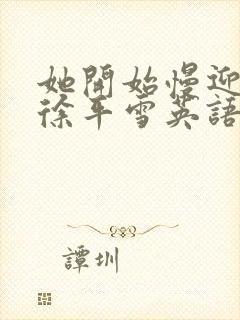 她開始慢迎
徐平雪英語
譚圳